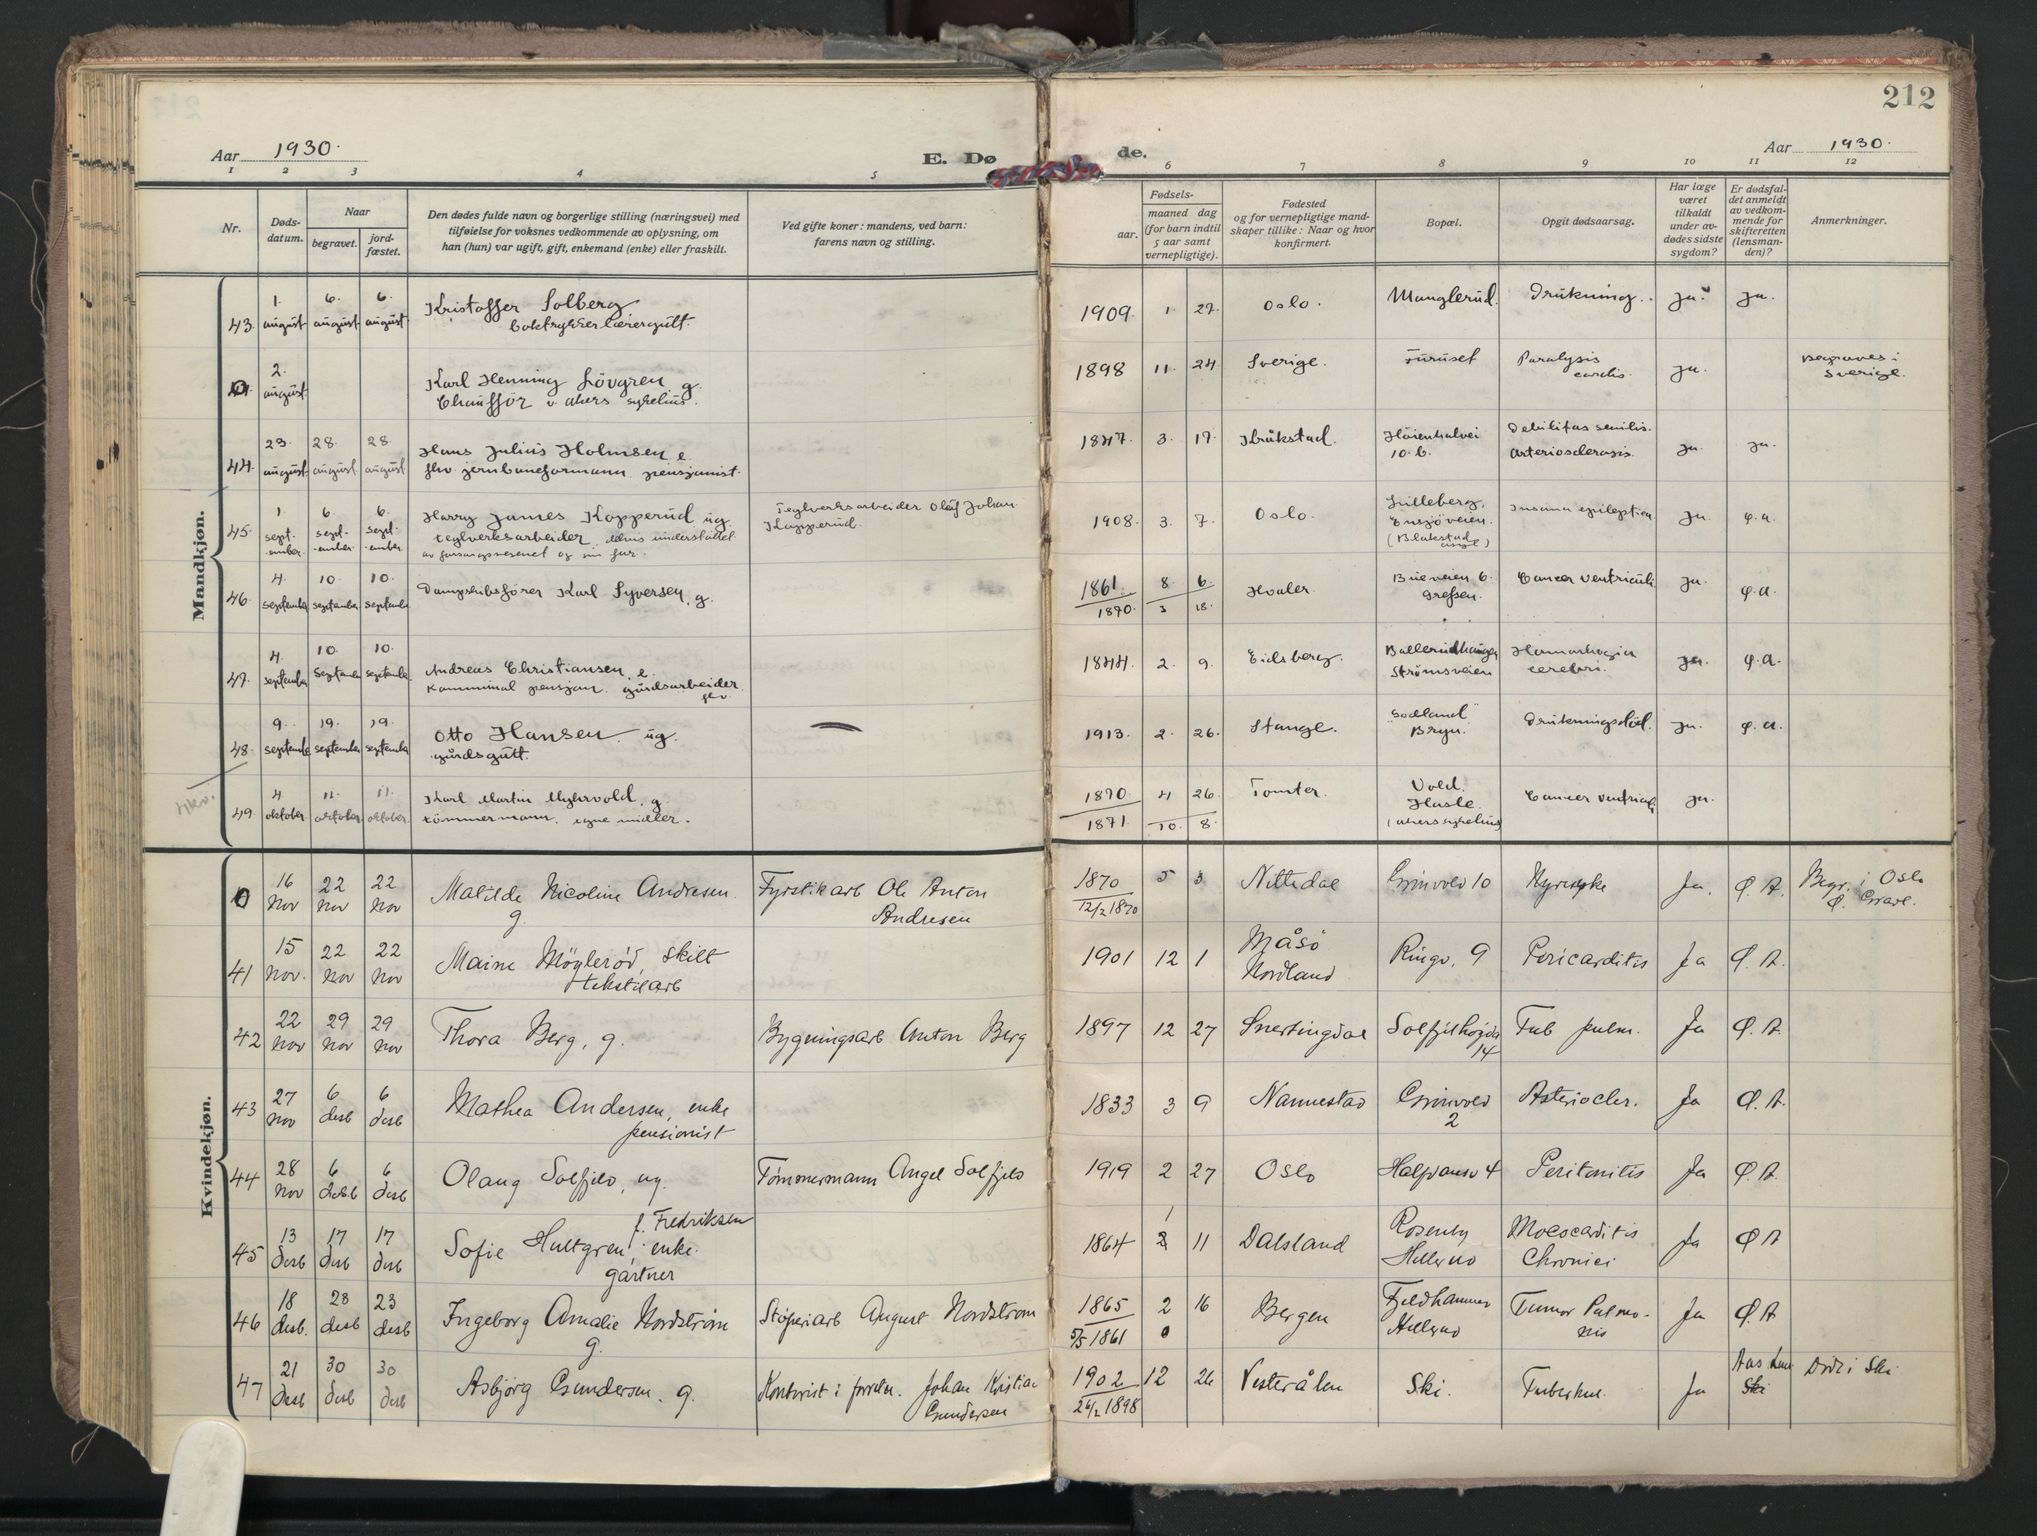 212
Aar 1930.
E. Dø
de.
Aar 1930.
1 2 3 4 5 6 7 8 9 10 11 12
Nr.
Døds-
datum.
Naar
begravet.
jord-
fæstet.
Den dødes fulde navn og borgerlige stilling (næringsvei) med
tilføielse for voksnes vedkommende av oplysning, om
han (hun) var ugift, gift, enkemand (enke) eller fraskilt.
Ved gifte koner: mandens, ved barn:
farens navn og stilling.
Fødsels-
aar.
maaned dag
(for barn indtil
5 aar samt
vernepligtige).
Fødested
og for vernepligtige mand-
skaper tillike: Naar og hvor
konfirmert.
Bopæl.
Opgit dødsaarsag.
Har læge
været
tilkaldt
under av-
dødes sidste
sygdom?
Er dødsfal-
det anmeldt
av vedkom-
mende for
skifteretten
(lensman-
den)?
Anmerkninger.
Mandkjøn.
43. 1. august 6. august 6. august Kristoffer Solberg 1909. 1. 27. Oslo. Manglerud. Drukning. ja. ja.
boktrykkerlærergutt.
2. august Karl Henning Lövgren g. 1898 11. 24. Sverige. Furuset Paralysis cordis. ja. Begraves i Sverige.
Chauffør v. akers sykehus.
44. 23. august 28. august 28. august Hans Julius Holmsen e. 1847. 3. 17. Kråkstad. Høienhalvei 10. b. Debilitas senilis. Arteriosclerosis. ja. ja.
flv. jernbaneformann pensjonist.
45. 1. september 6. september 6. september Harry James Kopperud ug. Teglverksarbeider Olaf Johan Kopperud. 1908. 3. 7. Oslo. Lilleberg, Ensjöveien. (Blakstad ) Insania epileptica ja. ø.a.
teglverksarbeider, delvis understøttet
av forsorgsvesenet og sin far.
46. 4. september 10. september 10. september Dampskibsfører Karl Syversen, g. 1861. 8. 6. Hvaler. Bueveien 6. Grefsen. Cancer ventriculi ja. ø.a.
1870. 3 18.
47. 4. september 10. september 10. september Andreas Christiansen, e. 1844. 2. 9. Eidsberg. Strømsveien Hæmorhagia cerebri. ja. ø.a.
Kommunal pensjon. gårdsarbeider flv.
48. 9. september 19. september 19. september Otto Hansen. ug. — 1913. 2. 26. Stange. "Godland" Bryn. Drukningsdød. ja. ø.a.
gårdsgutt.
49. 4 oktober. 11. oktober. 11. oktober. Karl Martin Myhrvold, g 1870. 4 26. Tomter. Vold. Hasle. (akers sykehus) Cancer ventriculi ja.
tømmermann, egne midler. 1871. 10. 8.
Kvindekjøn.
0 16 Nov 22 Nov 22 Nov Matilde Nicoline Andresen. g. Fyrstikarb Ole Anton Andresen 1870 5 3 Nittedal Grinivold 10 Nyresyke Ja. Ø. A. Begr. i Oslo
12/2 1870
41 15 Nov. 22 Nov 22 Nov Maine Möylerød, skilt 1901 12 1 Måsö Nordland Ringv. 9 Pericarditis Ja Ø. A.
tekstilarb
42 22 Nov 29 Nov 29 Nov Thora Berg, g. Bygningsarb Anton Berg 1897 12 27 Snertingdal Solfjellhøgda 14 Tub pulm. Ja Ø. A.
43 27 Nov 6 desb 6 desb Mathea Andersen, enke 1833 3 9 Nannestad Grinivold 2 Asteriocler. Ja Ø. A.
pensionist
44 28 Nov 6 desb 6 desb Olaug Solfjeld, ug. Tømmermann Angel Solfjeld 1919 2 27 Oslo Halfdansv 4 Peritonitis Ja Ø. A.
45 13 desb 17 desb 17 desb Sofie Hultgren, f. Fredriksen enke. 1864 1 2 11 Dalsland Rosenby Hellerud Moescarditis Chronici Ja Ø A
gartner
46 18 desb. 23 desb 23 desb Ingeborg Amalie Nordstrøm g. Støperiarb August Nordstrøm 1865 2 16 Bergen Fjeldhammer Hellerud Tumor Pulmonis Ja Ø. A
5/5 1861 0
47 21 desb 30 desb 30 desb Asbjörg Gundersen. g. Kontorist i forretn. Johan Kristian Gundersen 1902 12 26 Vesterålen Ski. Tuberkul. Ja Aas Ski Død i Ski
26/2 1898